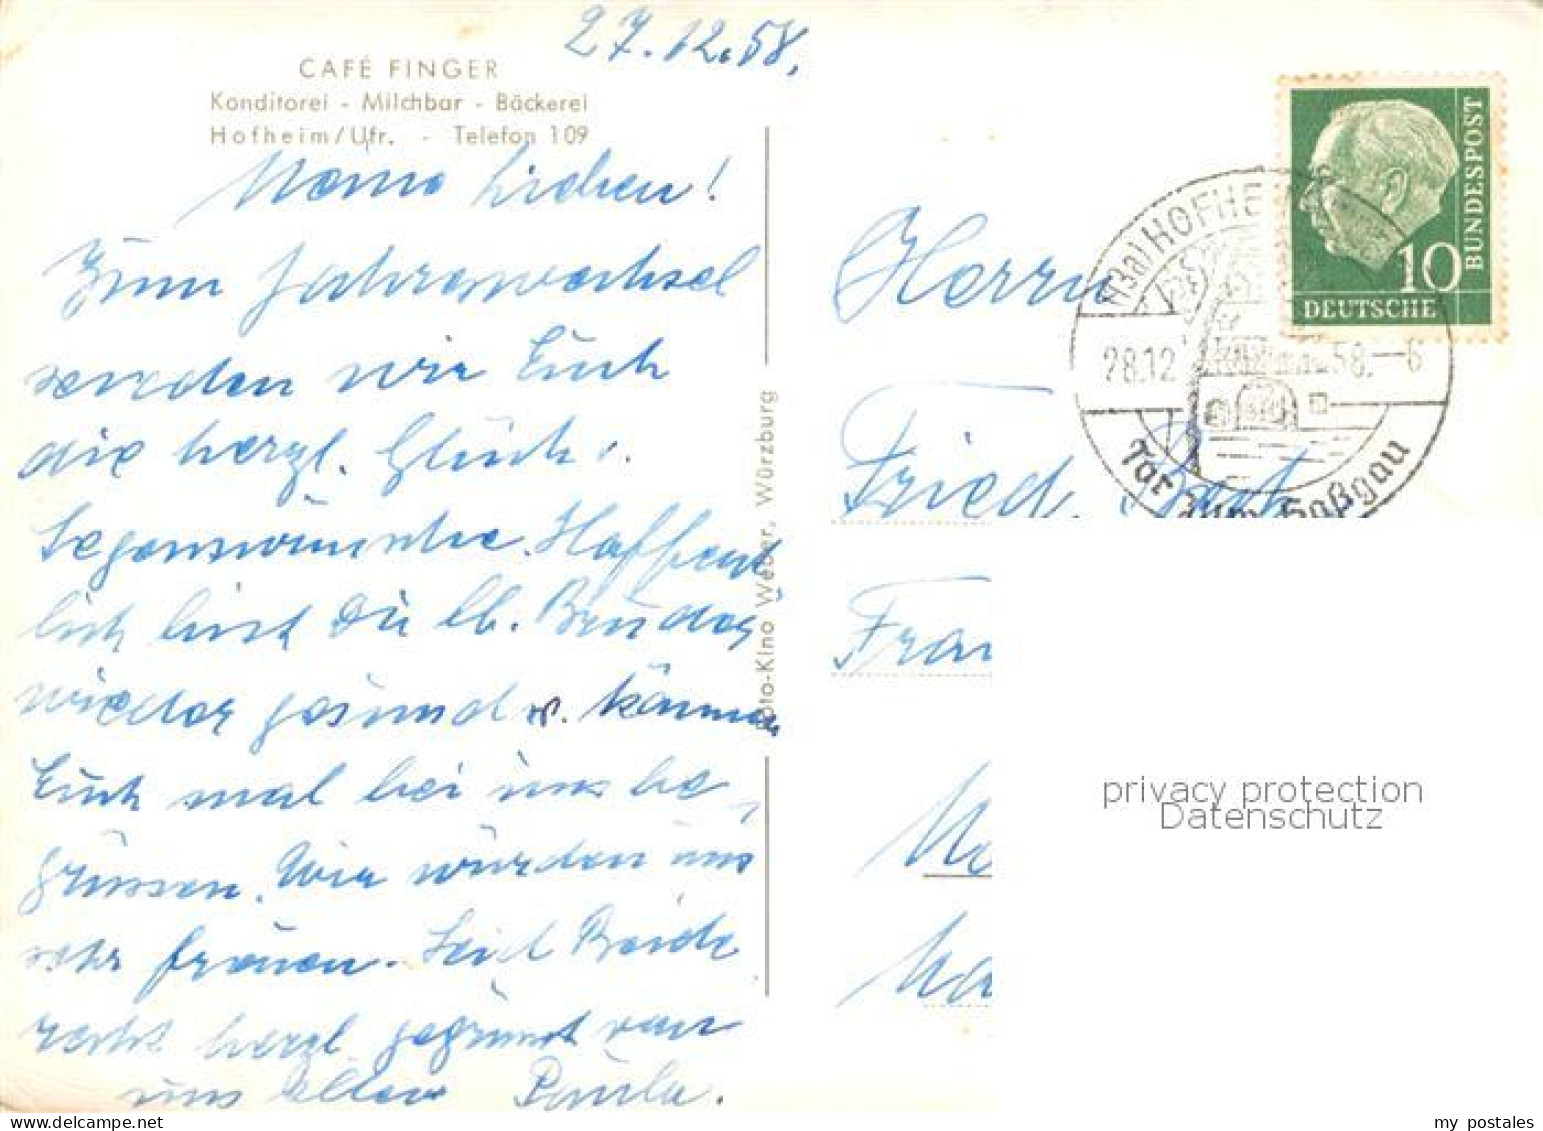 27.12.58.
CAFÉ FINGER
Konditorei - Milchbar - Bäckerei
Hofheim/Ufr. - Telefon 109
Meine Lieben!
Zum Jahreswechsel
senden wir Euch
die herzl. Glück u.
Segenswünsche. Hoffent
lich bist Du lb. Bruder
wieder gesund u. können
Euch mal bei uns be-
grüssen. Wir würden uns
sehr freuen. Seid Beide
recht herzl. gegrüsst von
uns Allen Paula.
Foto-Kino Weber, Würzburg
BUNDESPOST
10
DEUTSCHE
(13a) HOFHE
28.12 58.--6
Tor zum Haßgau
Herrn
Fried.
privacy protection
Datenschutz
my postales